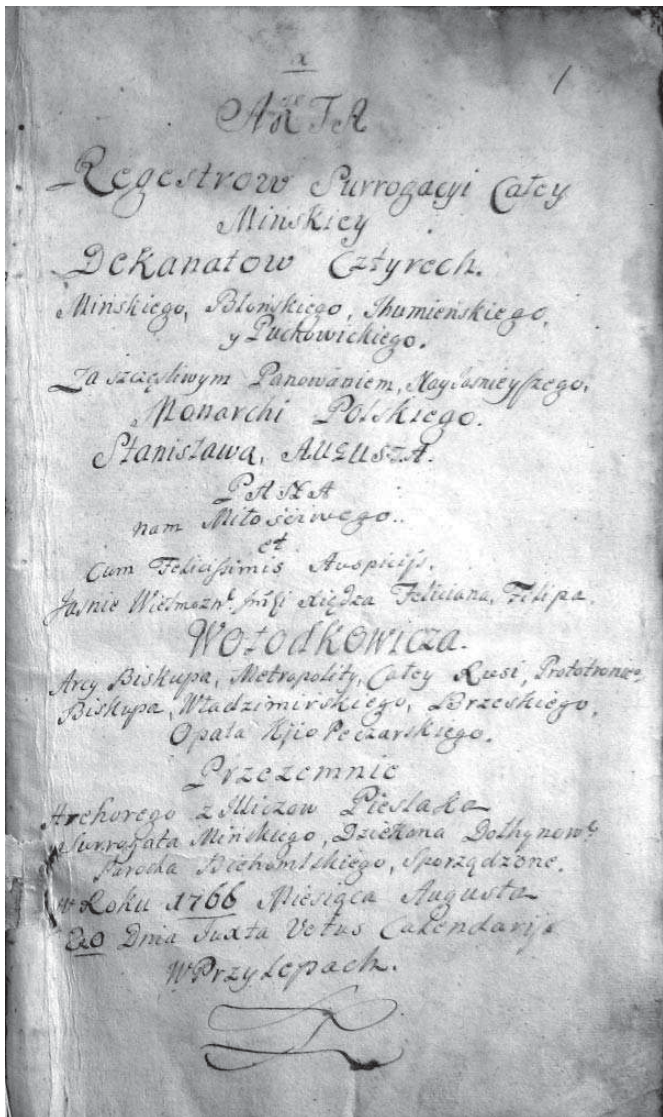 1
AKTA
Regestrow Surrogacyi Całey
Mińskiey
Dekanatow Cztyrech.
Mińskiego, Błońskiego, Ihumieńskiego,
y Puchowickiego.
Za szczęśliwym Panowaniem, Nayjaśnieyszego,
Monarchi Polskiego.
Stanisława, Augusta.
PANA
nam Miłościwego..
et
Cum Felicissimis Auspicijs.
Jaśnie Wielmożn° Xiędza Feliciana, Filipa.
Wołodkowicza.
Arcy Biskupa, Metropolity, Całey Rusi, Prototroniego,
Biskupa, Władzimirskiego, Brzeskiego,
Opata Kjio Peczarskiego.
Przezemnie
z Pieslaka
Surrogata Mińskiego, Dziekana
Parocha Sporządzone.
w Roku 1766 Miesiąca Augusta
Dnia Juxta Vetus Calendarij
W Przylepach.